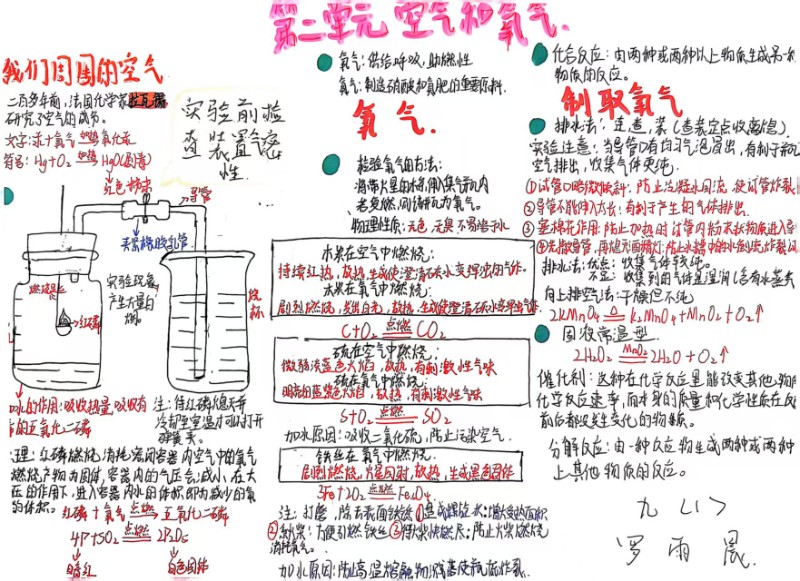 第二单元 空气和氧气.
我们周围的空气
二百多年前,法国化学家拉瓦锡
研究了空气的成分。
文字:汞+氧气 加热 氧化汞
符号:Hg+O₂ 加热 HgO(固毒)
红色粉末
实验前检
查装置气密
性.
导管
夹紧橡胶乳管
燃烧匙
红磷
实验现象
产生大量白
烟。
烧杯
加水的作用:吸收热量,吸收有
的五氧化二磷
注:待红磷熄灭并
冷却至室温才可打开
弹簧夹。
理:红磷燃烧消耗密闭容器内空气中的氧气
燃烧产物为固体,容器内的气压会减小,在大
的作用下,进入容器内水的体积即为减少的氧
的体积。
红磷+氧气 点燃 五氧化二磷
4P+5O₂ 点燃 2P₂O₅
暗红
白色固体
氧气:供给呼吸,助燃性
氮气:制造硝酸和氮肥的重要原料.
氧气.
检验氧气的方法:
将带火星的木条伸入集气瓶内
若复燃,则该瓶为氧气。
物理性质:无色,无臭不易溶于水
木炭在空气中燃烧:
持续红热,放热,生成使澄清石灰水变浑浊的气体.
木炭在氧气中燃烧:
剧烈燃烧,发出白光,放热,生成使澄清石灰水变浑浊气体.
C+O₂ 点燃 CO₂
硫在空气中燃烧:
微弱淡蓝色火焰,放热,有刺激性气味
硫在氧气中燃烧:
明亮的蓝紫色火焰,放热,有刺激性气味
S+O₂ 点燃 SO₂
加水原因:吸收二氧化硫,防止污染空气.
铁丝在氧气中燃烧:
剧烈燃烧,火星四射,放热,生成黑色固体
3Fe+2O₂ 点燃 Fe₃O₄
注:打磨,除去表面铁锈 ①盘成螺旋状:增大受热面积
②系火柴:方便引燃铁丝 ③待火柴快燃尽:防止火柴燃烧
消耗氧气.
加水原因:防止高温熔融物溅落使瓶底炸裂.
化合反应:由两种或两种以上物质生成另一种
物质的反应。
制取氧气
排水法:连,查,装(查装定点收离熄)
实验注意:当导管口有均匀气泡冒出,有利于
空气排出,收集气体更纯.
①试管口略微倾斜:防止冷凝水回流,使试管炸裂
②导管不能伸入太长:有利于产生的气体排出.
③塞棉花作用:防止加热时试管内粉末状物质进入导
④先撤导管,再熄灭酒精灯:防止水槽中的水倒吸炸裂试
排水法:优点:收集气体较纯.
不足:收集到的气体是湿润(含有水蒸气
向上排空法:干燥但不纯
2KMnO₄ △ K₂MnO₄+MnO₂+O₂↑
固液常温型
2H₂O₂ MnO₂ 2H₂O+O₂↑
催化剂:这种在化学反应里能改变其他物
化学反应速率,而本身的质量和化学性质在反
前后都没发生变化的物质.
分解反应:由一种反应物生成两种或两种
上其他物质的反应.
九(1)
罗雨晨